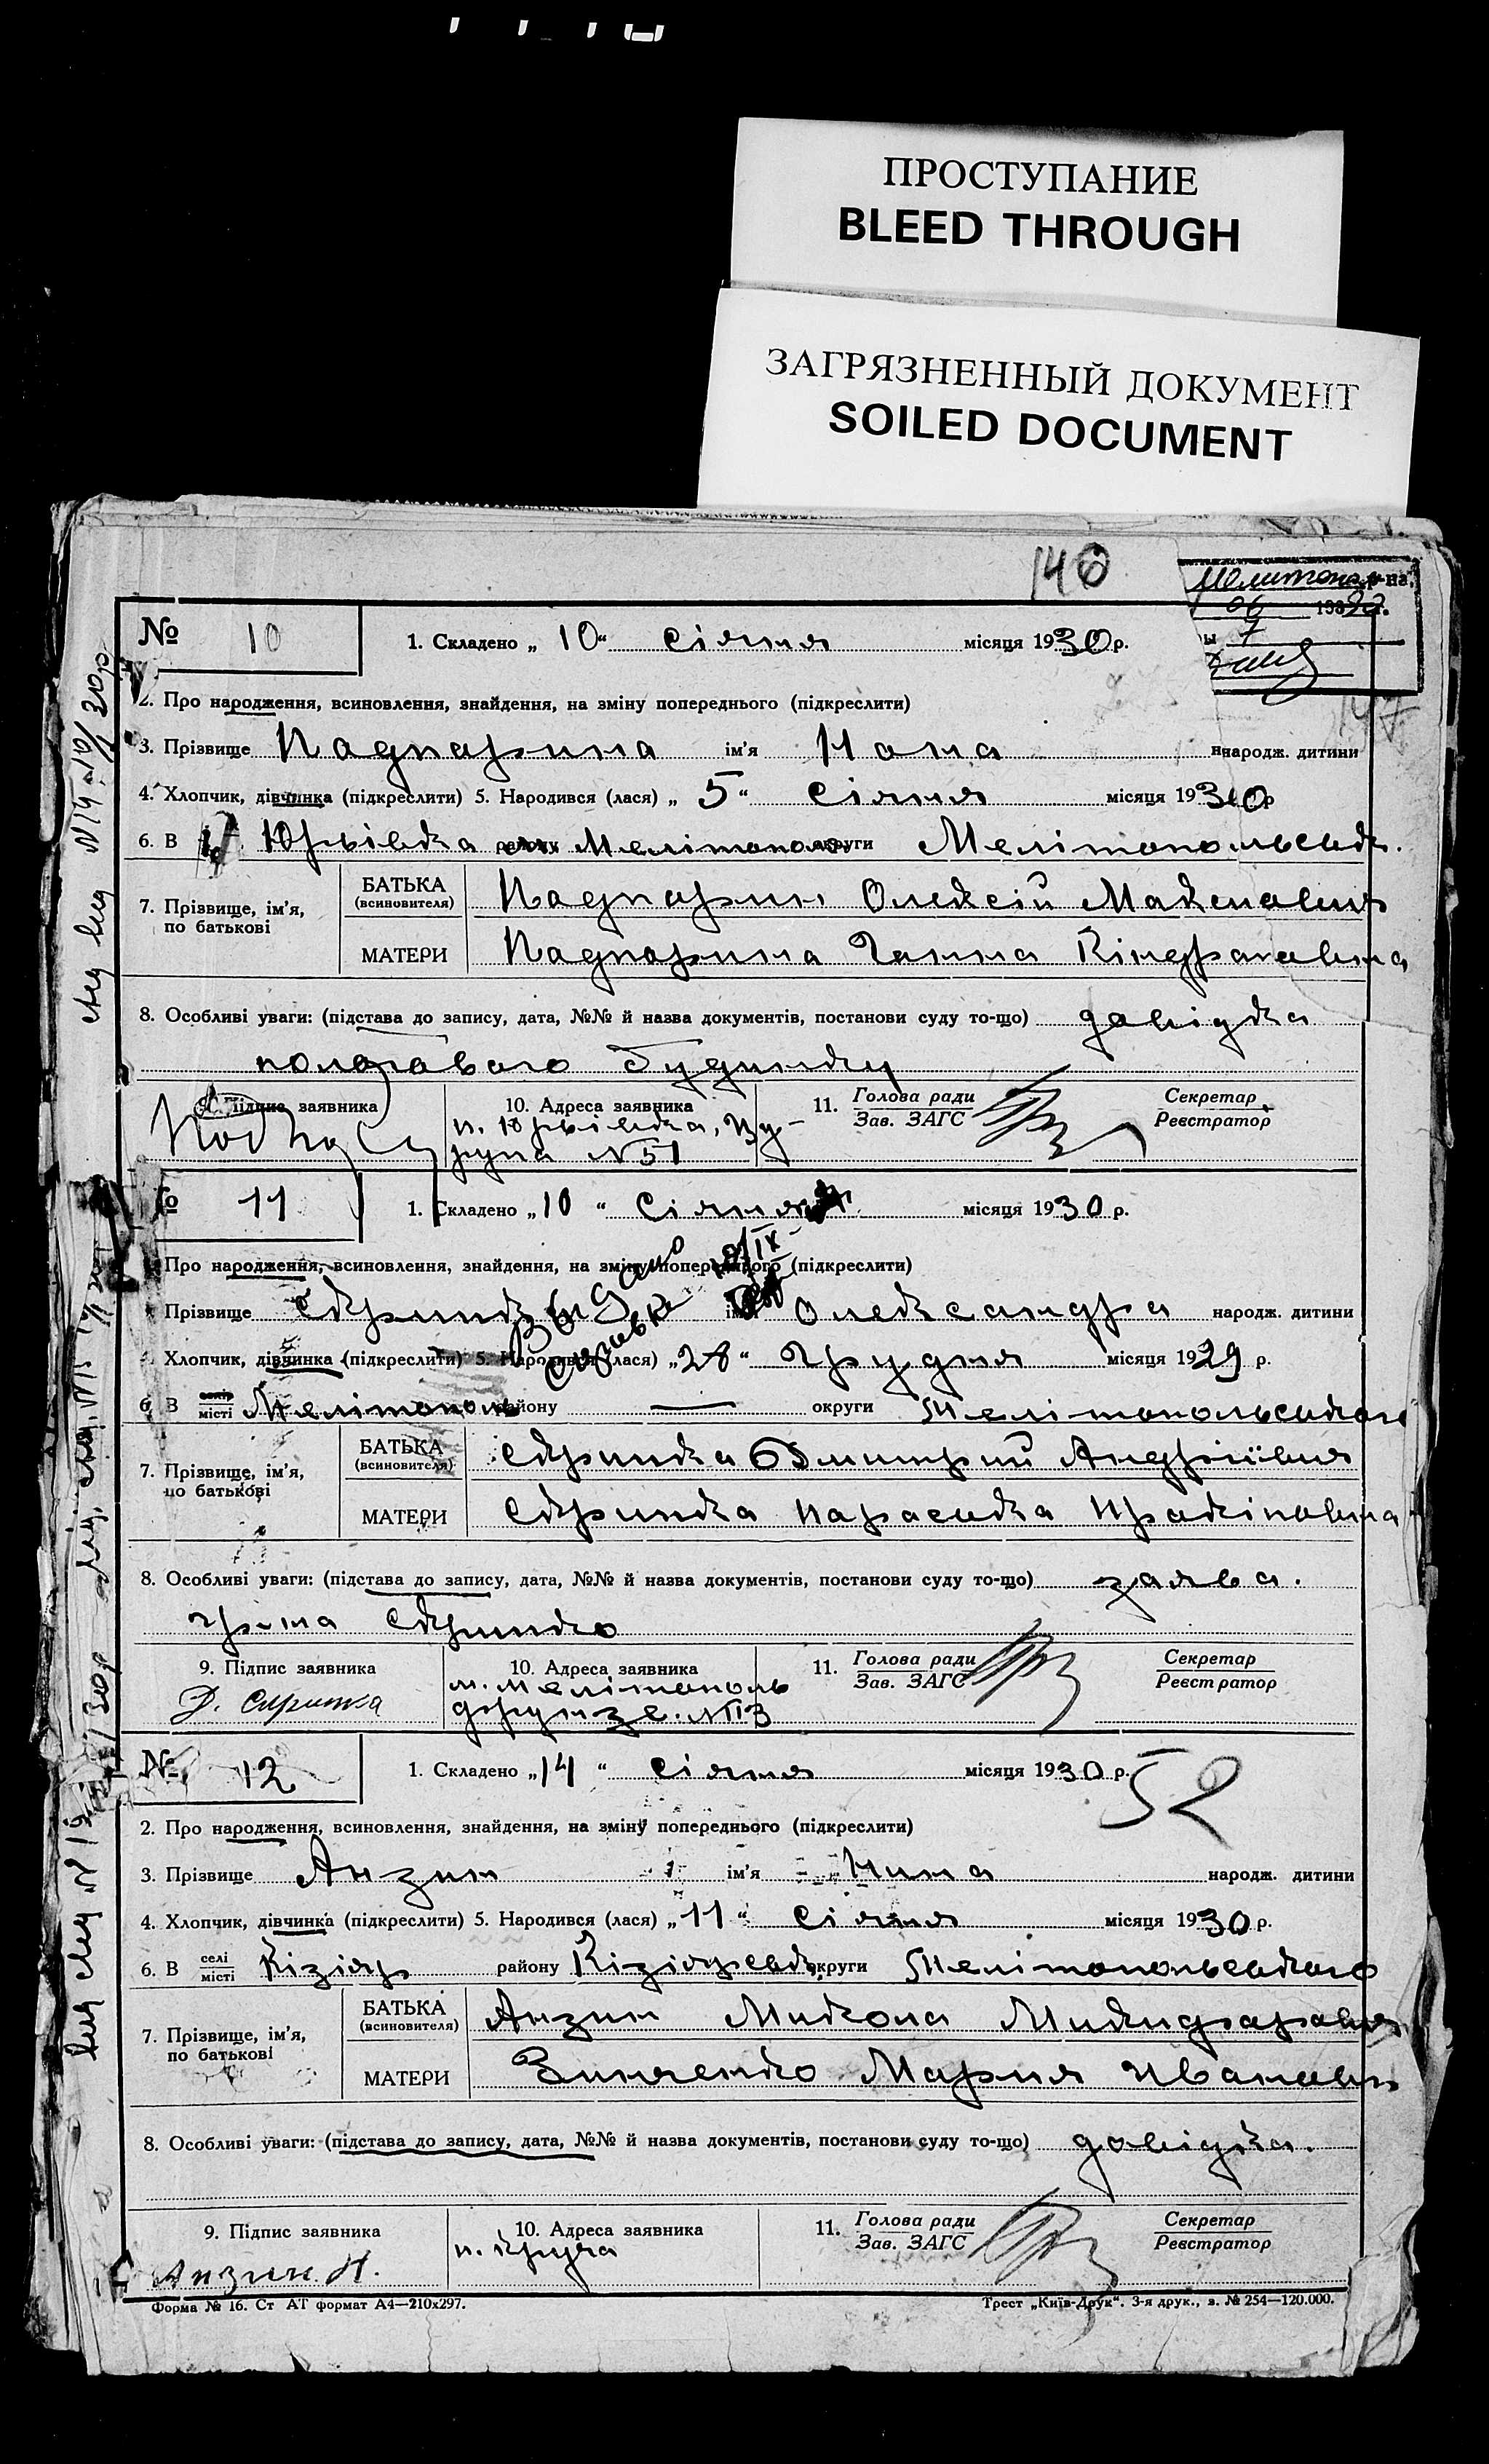 ПРОСТУПАНИЕ
BLEED THROUGH
ЗАГРЯЗНЕННЫЙ ДОКУМЕНТ
SOILED DOCUMENT
146
№ 10 1. Складено „10“ Січня місяця 1930 р.
2. Про народження, всиновлення, знайдення, на зміну попереднього (підкреслити)
3. Прізвище Падпарина ім'я Нона народж. дитини
4. Хлопчик, дівчинка (підкреслити) 5. Народився (лася) „5“ Січня місяця 1930 р
6. В Юрьівка району м. Мелітополь округи Мелітопольськ.
7. Прізвище, ім'я, по батькові
БАТЬКА (всиновителя) Падпарин Олексій Макснович
МАТЕРИ Падпарина Ганна Кіндратовна
8. Особливі уваги: (підстава до запису, дата, №№ й назва документів, постанови суду то-що) довідка
пологового будинку
9. Підпис заявника
10. Адреса заявника
п. Юрьівка,
№ 51
11. Голова ради
Зав. ЗАГС
Секретар
Реєстратор
№ 11 1. Складено „10“ Січня місяця 1930 р.
Про народження, всиновлення, знайдення, на зміну попереднього (підкреслити)
Прізвище Скринка ім'я Олександра народж. дитини
Выдано
справка
4. Хлопчик, дівчинка (підкреслити) 5. Народився (лася) „28“ Грудня місяця 1929 р.
6. В селі місті Мелітополь району — округи Мелітопольського
7. Прізвище, ім'я, по батькові
БАТЬКА (всиновителя) Скринка Дмитрий Андріївич
МАТЕРИ Скринка Параська Пракіповна
8. Особливі уваги: (підстава до запису, дата, №№ й назва документів, постанови суду то-що) заява.
гр-на Скринко
9. Підпис заявника
Д. Скринка
10. Адреса заявника
м. Мелітополь
Фрунзе. № 113
11. Голова ради
Зав. ЗАГС
Секретар
Реєстратор
№ 12 1. Складено „14“ Січня місяця 1930 р.
52
2. Про народження, всиновлення, знайдення, на зміну попереднього (підкреслити)
3. Прізвище Анзин ім'я Нина народж. дитини
4. Хлопчик, дівчинка (підкреслити) 5. Народився (лася) „11“ Січня місяця 1930 р.
6. В селі місті Кізіяр району Кізіярськ. округи Мелітопольського
7. Прізвище, ім'я, по батькові
БАТЬКА (всиновителя) Анзин Микола Микифарович
МАТЕРИ Зинченко Мария Ивановн
8. Особливі уваги: (підстава до запису, дата, №№ й назва документів, постанови суду то-що) довідка.
9. Підпис заявника
Анзин Н.
10. Адреса заявника
11. Голова ради
Зав. ЗАГС
Секретар
Реєстратор
Форма № 16. Ст АТ формат А4—210х297.
Трест „Київ-Друк“. 3-я друк., з. № 254—120.000.